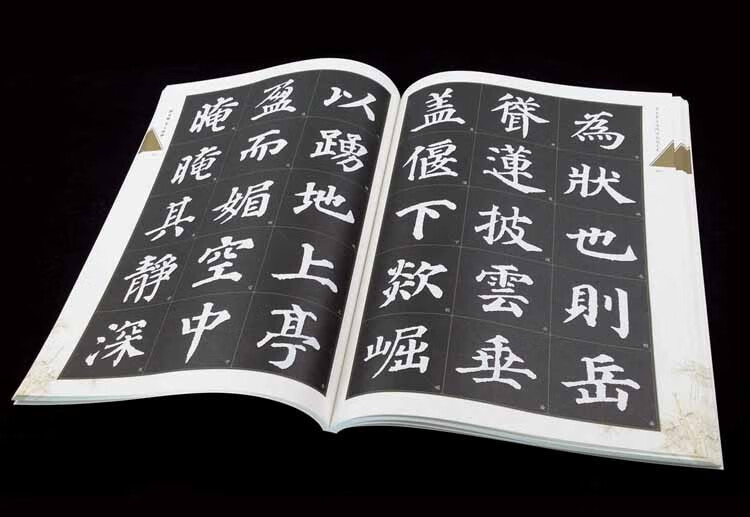 為狀也則岳
聳蓮披雲垂
盖偃下欻崛
以踴地上亭
盈而媚空中
晻晻其靜深